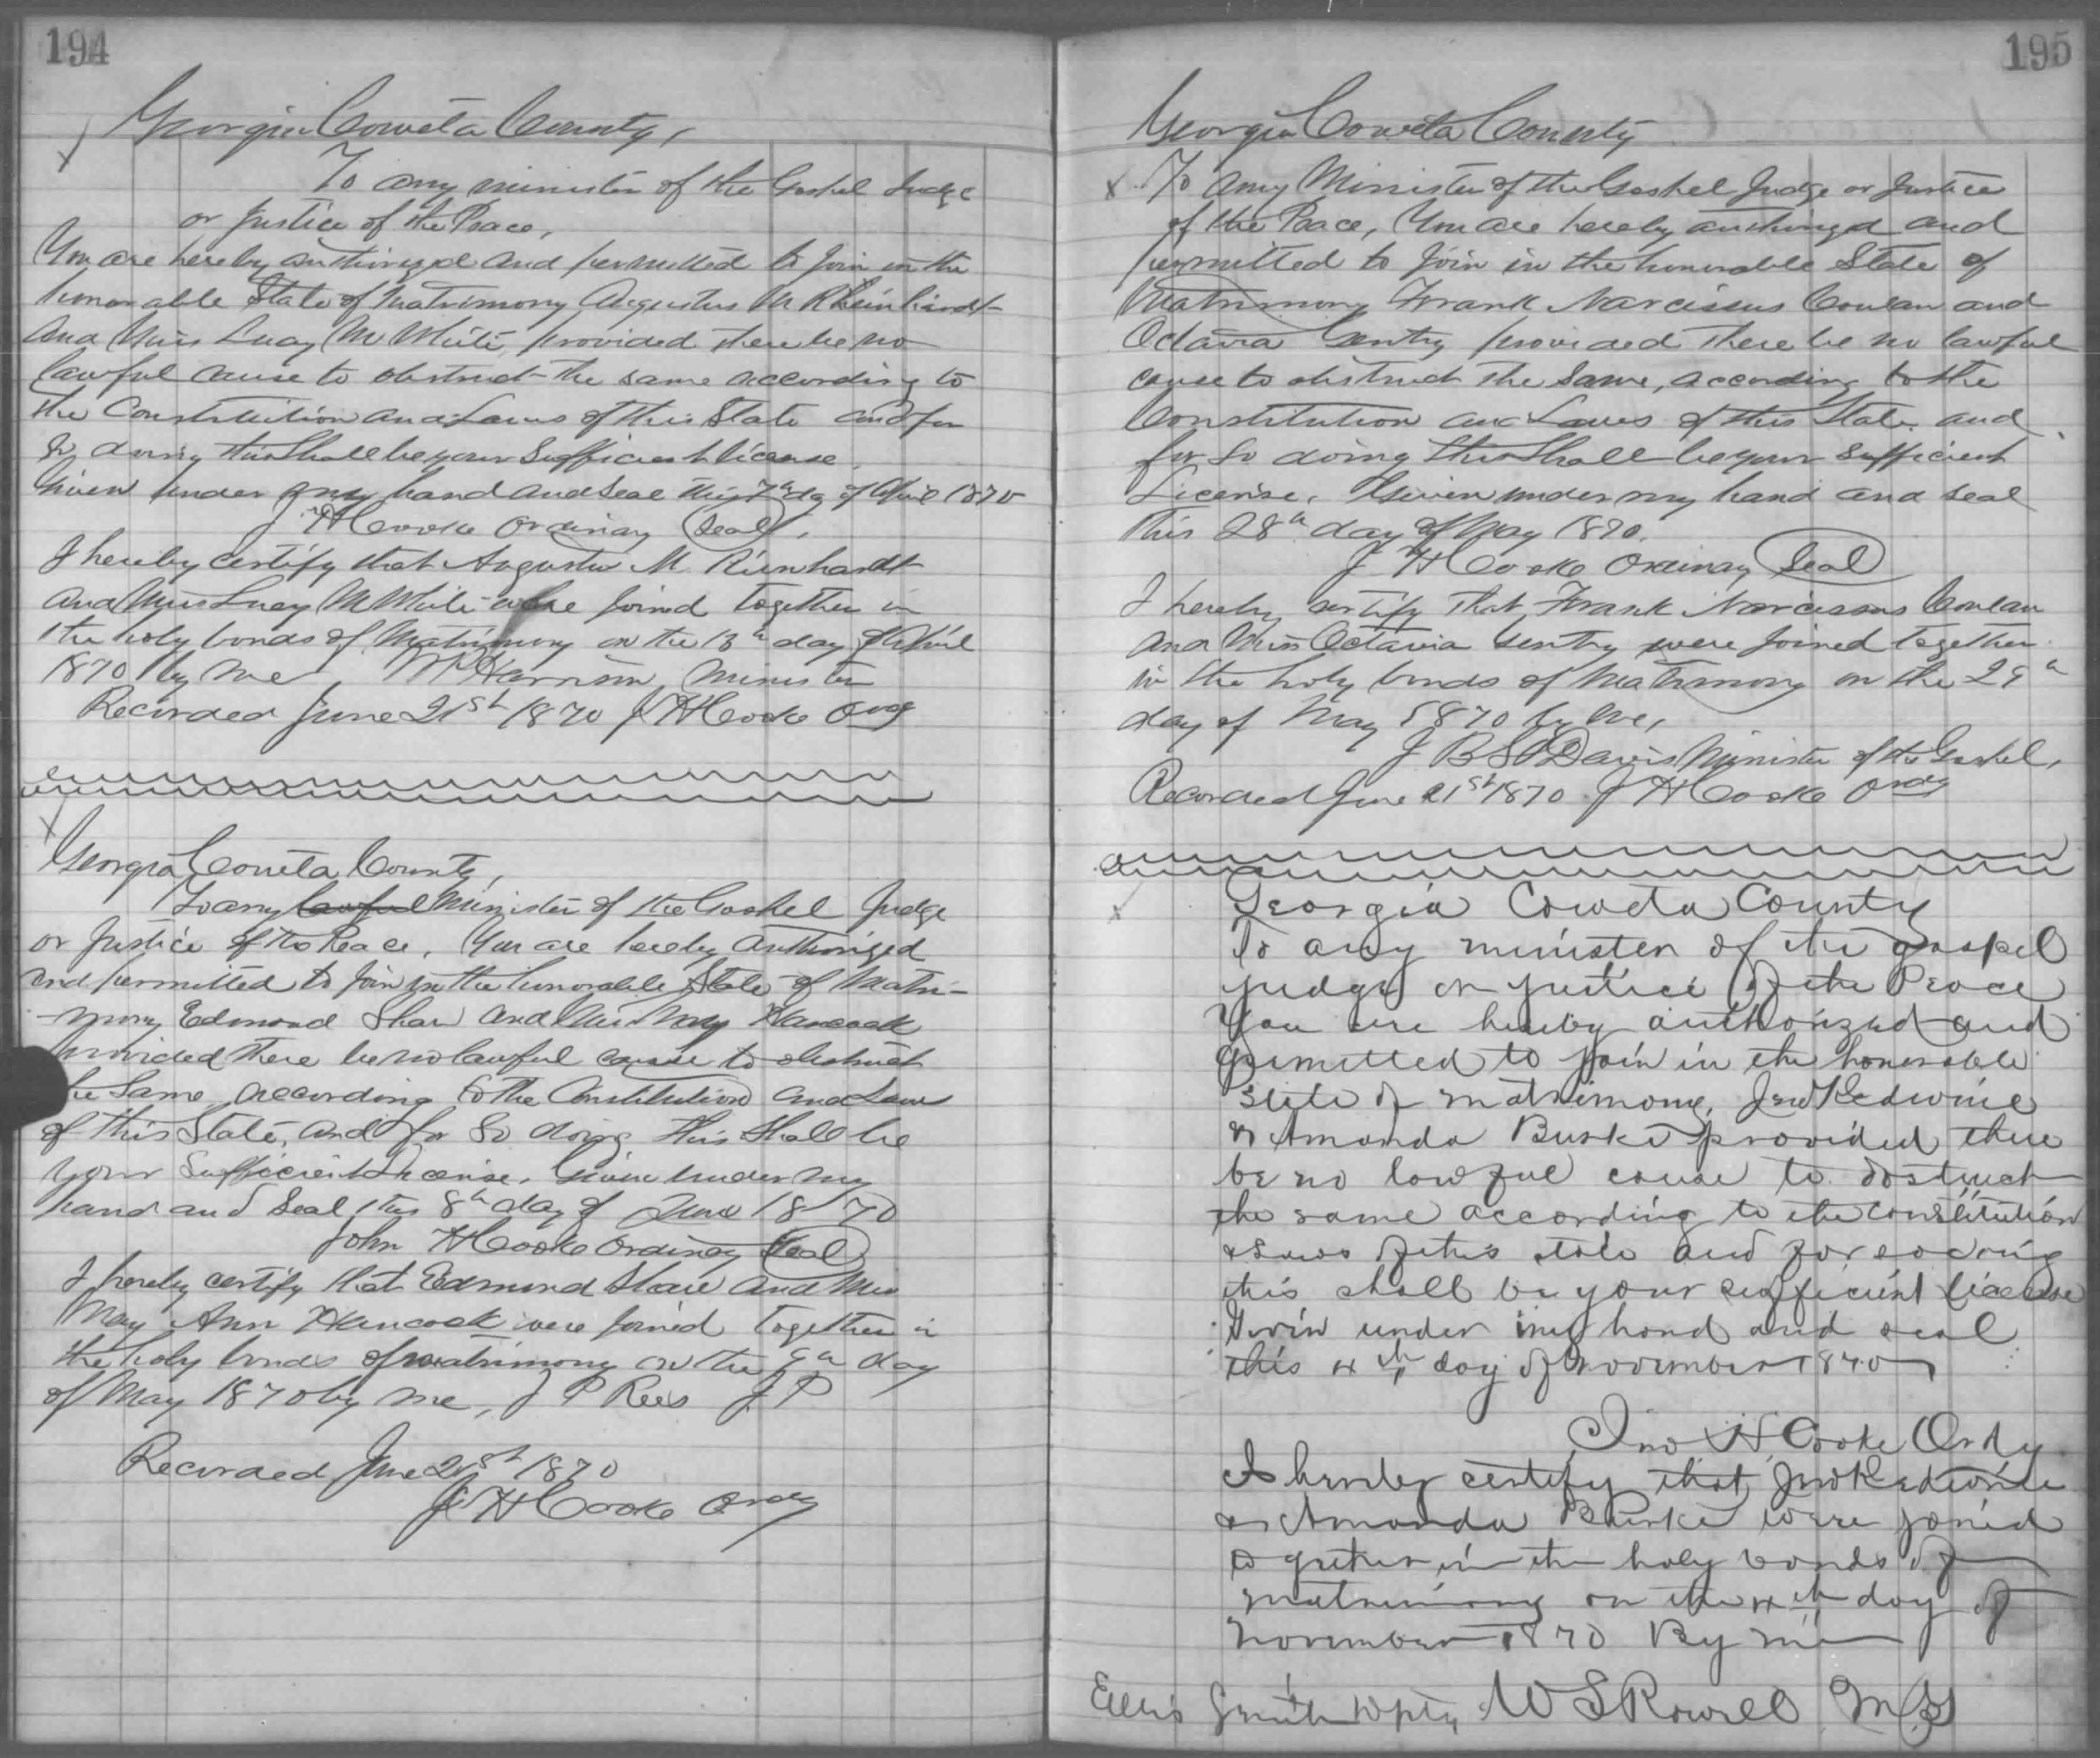 194
Georgia Coweta County,
To any minister of the Gospel Judge
or Justice of the Peace,
You are hereby authorized and permitted to join in the
honorable State of Matrimony Augustus M Rheinhardt
and Miss Lucy M White, provided there be no
lawful cause to obstruct the same according to
the Constitution and Laws of this State and for
so doing this Shall be your Sufficient license,
Given under my hand and Seal this 7th dy of April 1870
J H Cooke Ordinary (Seal),
I hereby certify that Augustus M Rienhardt
and Miss Lucy M White were joined together in
the holy bonds of Matrimony on the 13th day of April
1870 by me Harrison, Minister
Recorded June 21st 1870 J H Cooke Ordy
Georgia Coweta County,
To any lawful Minister of the Gospel Judge
or Justice of the Peace, You are hereby authorized
and permitted to join in the honorable State of Matri-
mony Edmond Shaw and Miss Mary Hancock
provided there be no lawful cause to obstruct
the Same according to the Constitution and Laws
of this State, and for So doing this Shall be
your Sufficient License, Given under my
hand and Seal this 8th day of June 1870
John H Cooke Ordinary (Seal)
I hereby certify that Edmund Shaw and Miss
Mary Ann Hancock were joined together in
the holy bonds of matrimony on the 9th day
of May 1870 by me, J P Rees J P
Recorded June 21st 1870
J H Cooke Ordy
195
Georgia Coweta County
To any Minister of the Gospel Judge or Justice
of the Peace, You are hereby authorized and
permitted to join in the honorable State of
Matrimony Frank Narcissus Cowan and
Octavia Gentry provided there be no lawful
cause to obstruct the Same, according to the
Constitution and Laws of this State, and
for So doing this Shall be your Sufficient
License, Given under my hand and Seal
this 28th day of May 1870.
J H Cooke Ordinary (Seal)
I hereby certify that Frank Narcissus Cowan
and Miss Octavia Gentry were joined together
in the holy bonds of Matrimony on the 29th
day of May 1870 by me,
J B S Davis Minister of the Gospel,
Recorded June 21st 1870 J H Cooke Ordy
Georgia Coweta County
To any minister of the gospel
judge or justice of the Peace
You are hereby authorized and
permitted to join in the honorable
state of matrimony, Jno Redwine
& Amanda Burke provided there
be no lawful cause to obstruct
the same according to the constitution
& laws of this state and for so doing
this shall be your sufficient license
Given under my hand and seal
this 4th day of November 1870
Jno H Cooke Ordy
I hereby certify that Jno Redwine
& Amanda Burke were joined
together in the holy bonds of
matrimony on the 4th day of
November 1870 By me
Ellis Smith Dpty W S Rowell M G